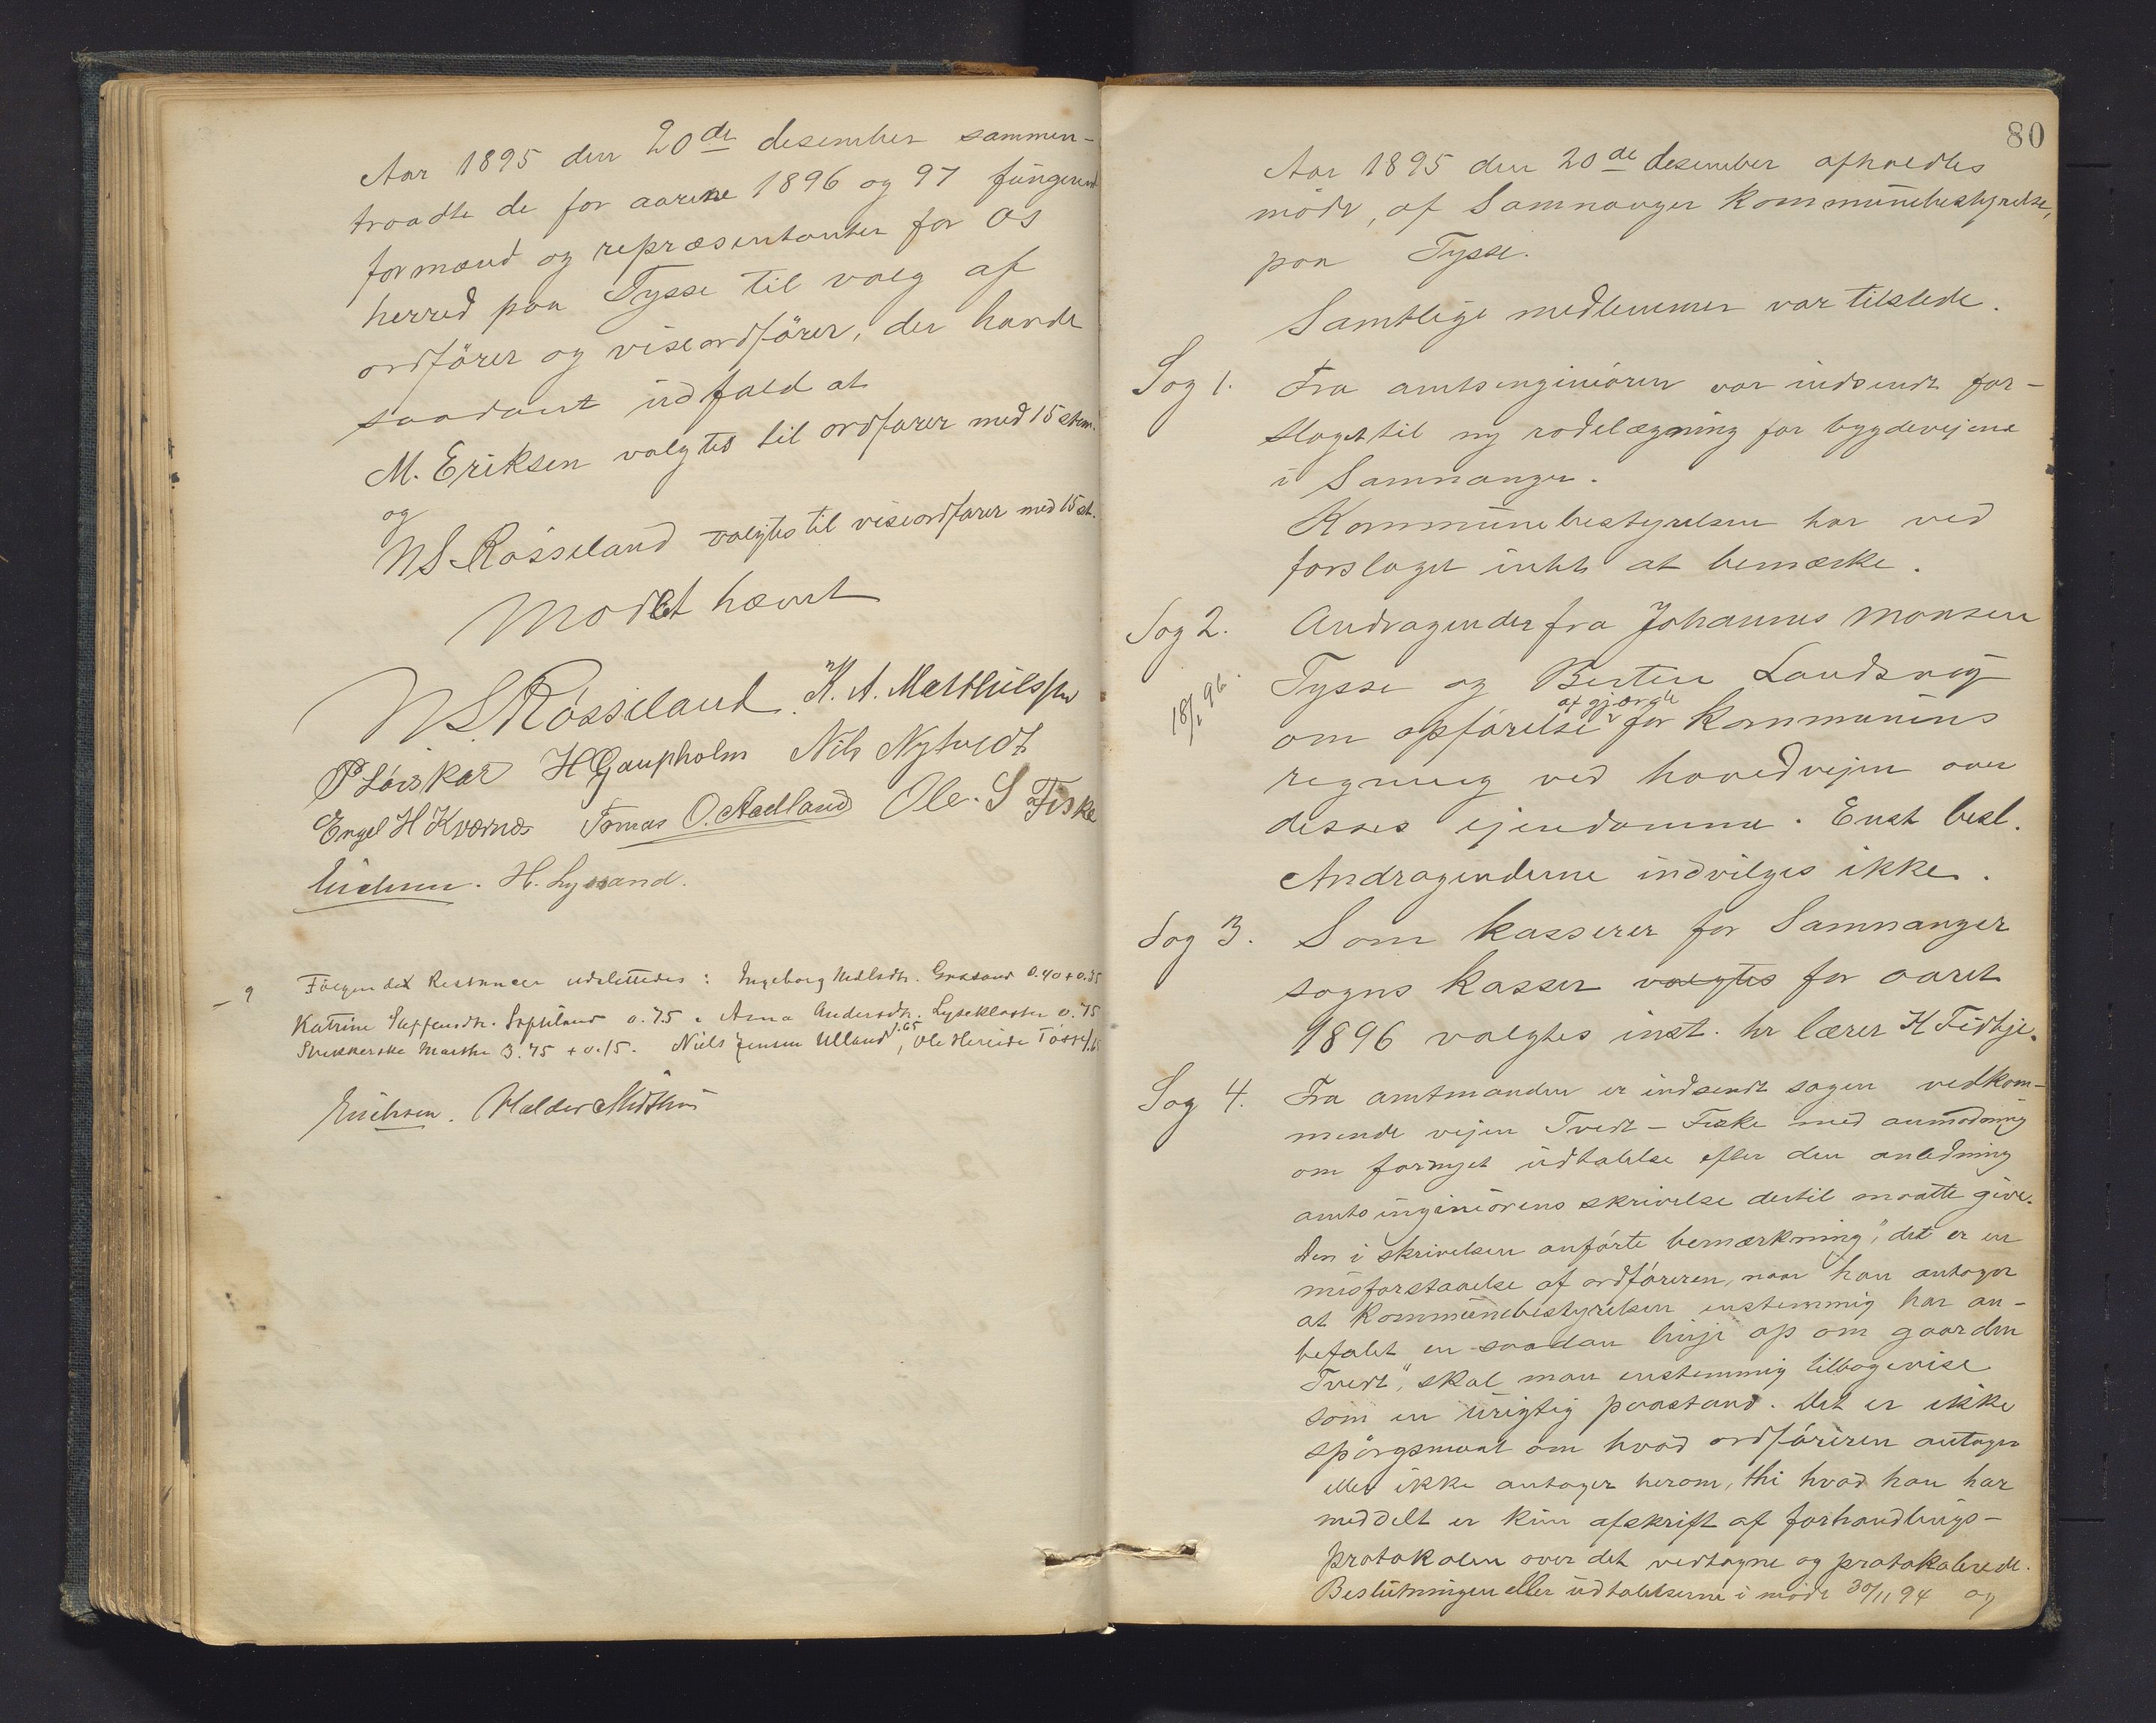 Aar 1895 den 20de desember sammen-
traadte de for aarene 1896 og 97 fungerend
formænd og repræsentanter for Os
herred paa Tysse til valg af
ordförer og viseordförer, der havde
saadant udfald at
M. Eriksen valgtes til ordförer med 15 stem.
og
NS Rösseland valgtes til viseordförer med 15 st.
Mödet hævet
NS Rösseland K. A. Mathiessen
P Löiskar H Gaupholm Nils Nytvedt
Engel H Kværnes Tomas O. Aadland Ole. S Fiske
Erichsen. H. Lyssand.
- 9 Fölgende Restancer udslettedes : Ingeborg 0.40 +
Katrine Steffensdtr. 0.75. Anna Andersdtr. Lyseklostre 0.75
Marthe 3.75 + 0.15. Niels Jensen Ulland 1.65, Ole
Erichsen. Haldor Midthus
80
Aar 1895 den 20de desember afholdtes
möde, af Samnanger kommünebestyrelse,
paa Tysse.
Samtlige medlemmer var tilstede.
Sag 1. Fra amtsingeniören var indsendt for-
slaget til ny rodelægning for bygdeveiene
i Samnanger.
Kommünebestyrelsen har ved
forslaget intet at bemærke.
Sag 2. Andragender fra Johannes Monsen
18/1 96. Tysse og Berten Landsvig
om opförelse af gjærde for kommunens
regning ved hovedvejen over
desses ejendomme. Enst besl.
Andragenderne indvilges ikke.
Sag 3. Som kasserer for Samnanger
sogns kasser valgtes for aaret
1896 valgtes inst. hr lærer K Tidhje.
Sag 4. Fra amtmanden er indsendt sagen vedkom-
mende vejen Tvedt - Fiske med anmodning
om fornyet üdtalelse efter den anledning
amtsingeniörens skrivelse dertil maatte give.
Den i skrivelsen anförte bemærkning, "det er en
misforstaaelse af ordföreren, naar han antager
at kommünebestyrelsen enstemmig har an-
befalet en saadan linje op om gaarden
Tvedt", skal man enstemmig tilbagevise
som en ürigtig paastand. Det er ikke
spörgsmaal om hvad ordföreren antager
eller ikke antager herom, thi hvad han har
meddelt er kün afskrift af forhandlings-
protokolen over det vedtagne og protokolerede.
Beslütningen eller üdtalelserne i möde 30/11 94 og